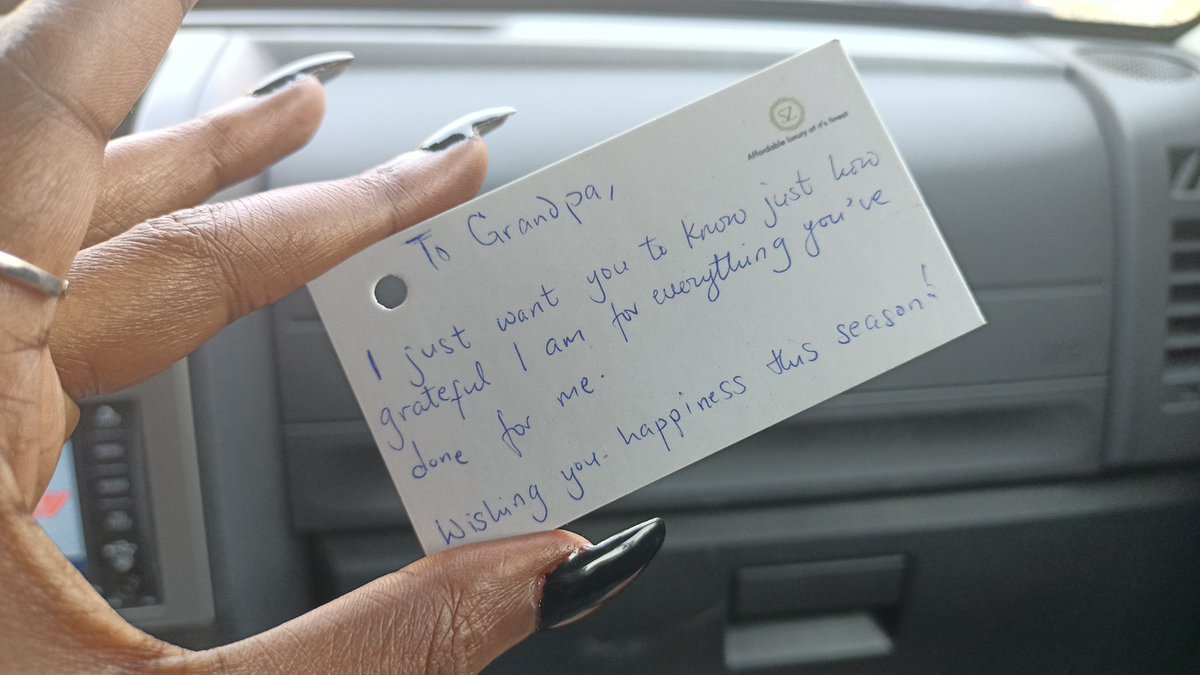 SZ
Affordable luxury at it's finest
To Grandpa,
I just want you to know just how
grateful I am for everything you've
done for me.
Wishing you happiness this season!